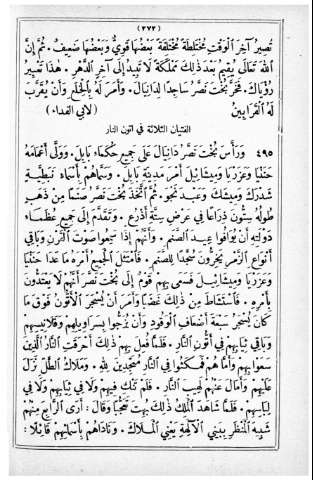 (٢٧٢)
تَصِيرُ آخِرَ ٱلْوَقْتِ مُخْتَلِطَةً مُخْتَلِفَةً بَعْضُهَا قَوِيٌّ وَبَعْضُهَا ضَعِيفٌ. ثُمَّ إِنَّ
ٱللهَ تَعَالَى يُقِيمُ بَعْدَ ذٰلِكَ مَمْلَكَةً لَا تَبِيدُ إِلَى آخِرِ ٱلدَّهْرِ. هٰذَا تَعْبِيرُ
رُؤْيَاكَ. فَخَرَّ بُخْتَ نَصَّرُ سَاجِدًا لِدَانِيَالَ. وَأَمَرَ لَهُ بِٱلْخِلَعِ وَأَنْ يُقَرَّبَ
لَهُ ٱلْقَرَابِينُ (لابي الفداء)
الفتيان الثلاثة في اتون النار
٤٩٥ وَرَأَّسَ بُخْتَ نَصَّرُ دَانِيَالَ عَلَى جَمِيعِ حُكَمَاءِ بَابِلَ. وَوَلَّى أَعْمَامَهُ
حَنَنْيَا وَعَزَرْيَا وَمِيشَائِيلَ أَمْرَ مَدِينَةِ بَابِلَ. وَسَمَّاهُمْ بِأَسْمَاءٍ نَبَطِيَّةٍ
شَدْرَكَ وَمِيشَكَ وَعَبْدَ نَجُو. ثُمَّ ٱتَّخَذَ بُخْتَ نَصَّرُ صَنَمًا مِنْ ذَهَبٍ
طُولُهُ سِتُّونَ ذِرَاعًا فِي عَرْضِ سِتَّةِ أَذْرُعٍ. وَتَقَدَّمَ إِلَى جَمِيعِ عُظَمَاءِ
دَوْلَتِهِ أَنْ يُوَافُوا عِيدَ ٱلصَّنَمِ. وَأَنَّهُمْ إِذَا سَمِعُوا صَوْتَ ٱلْقَرْنِ وَبَاقِي
أَنْوَاعِ ٱلزَّمْرِ يَخِرُّونَ سُجَّدًا لِلصَّنَمِ. فَٱمْتَثَلَ ٱلْجَمِيعُ أَمْرَهُ مَا عَدَا حَنَنْيَا
وَعَزَرْيَا وَمِيشَائِيلَ فَسَعَى بِهِمْ قَوْمٌ إِلَى بُخْتَ نَصَّرَ أَنَّهُمْ لَا يَعْتَدُّونَ
بِأَمْرِهِ. فَٱسْتَشَاطَ مِنْ ذٰلِكَ غَضَبًا وَأَمَرَ أَنْ يُسْجَرَ ٱلْأَتُّونُ فَوْقَ مَا
كَانَ يُسْجَرُ سَبْعَةَ أَضْعَافِ ٱلْوَقُودِ وَأَنْ يُزَجُّوا بِسَرَاوِيلِهِمْ وَقَلَانِسِهِمْ
وَبَاقِي ثِيَابِهِمْ فِي أَتُّونِ ٱلنَّارِ. فَلَمَّا فُعِلَ بِهِمْ ذٰلِكَ أَحْرَقَتِ ٱلنَّارُ ٱلَّذِينَ
سَعَوْا بِهِمْ وَأَمَّا هُمْ فَمَكَثُوا فِي ٱلنَّارِ مُمَجِّدِينَ لِلهِ. وَمَلَاكُ ٱلطَّلِّ نَزَلَ
عَلَيْهِمْ وَأَمَالَ عَنْهُمْ لَهِيبَ ٱلنَّارِ. فَلَمْ تَنْكِ فِيهِمْ وَلَا فِي ثِيَابِهِمْ وَلَا فِي
لِبَاسِهِمْ. فَلَمَّا شَاهَدَ ٱلْمَلِكُ ذٰلِكَ بُهِتَ تَعَجُّبًا وَقَالَ: أَرَى ٱلرَّابِعَ مِنْهُمْ
شَبِيهَ ٱلْمَنْظَرِ بِبَنِي ٱلْآلِهَةِ يَعْنِي ٱلْمَلَاكَ. وَنَادَاهُمْ بِأَسْمَائِهِمْ قَائِلًا: